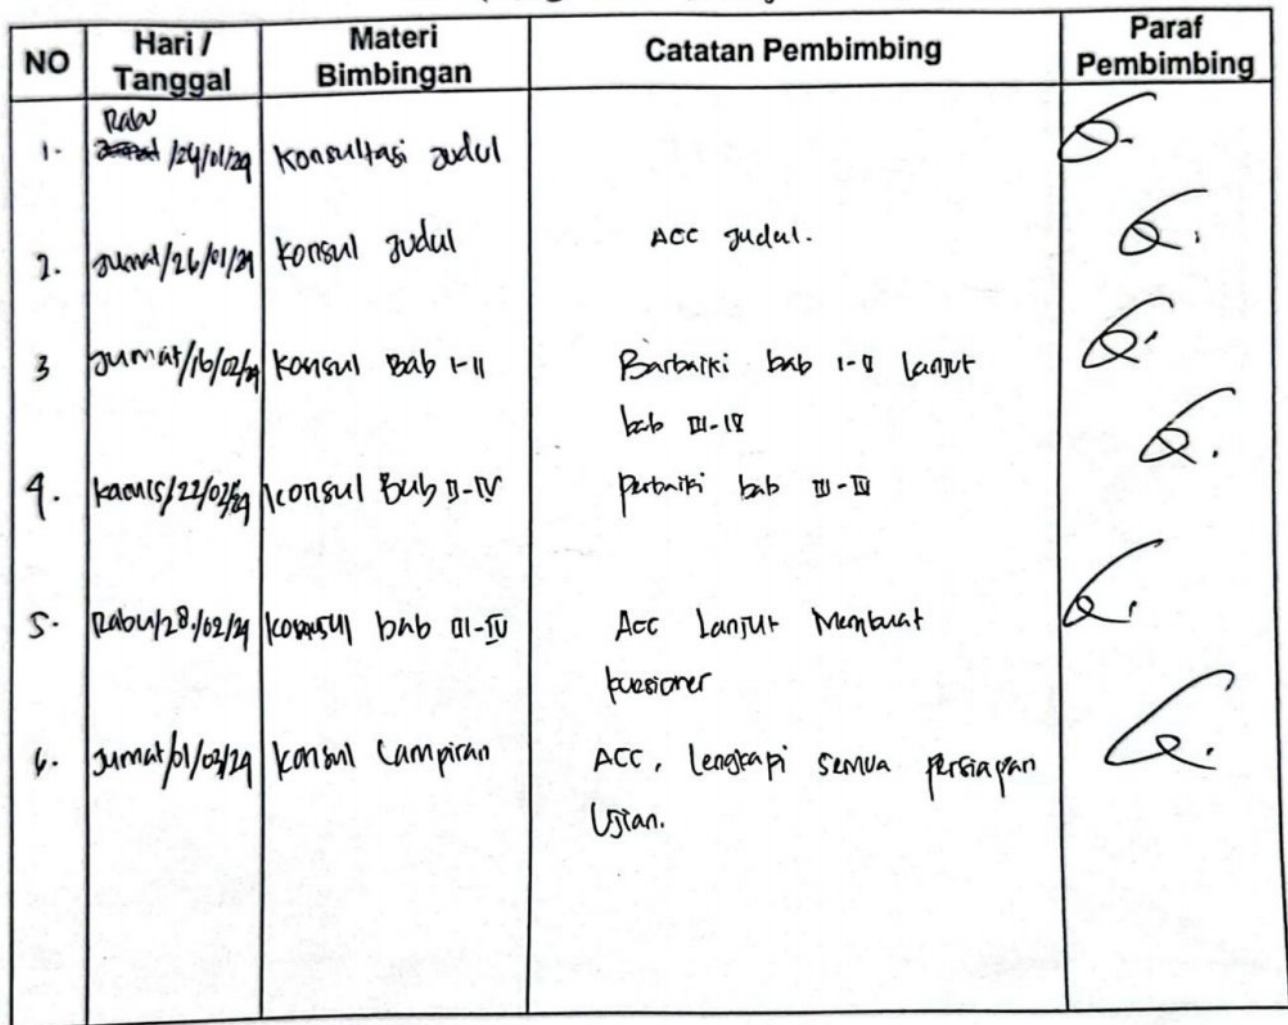 NO Hari / Tanggal Materi Bimbingan Catatan Pembimbing Paraf Pembimbing
Rabu
1. /24/01/24 Konsultasi Judul
2. Jumat/26/01/24 Konsul Judul ACC Judul.
3 Jumat/16/02/24 Konsul Bab I-II Barbaiki bab I-II lanjut
bab III-IV
4. Kamis/22/02/24 Konsul Bab II-IV perbaiki bab III-IV
5. Rabu/28/02/24 Konsul bab III-IV Acc Lanjut Membuat
kuesioner
6. Jumat/01/03/24 Konsul Lampiran ACC, lengkapi semua persiapan
Ujian.